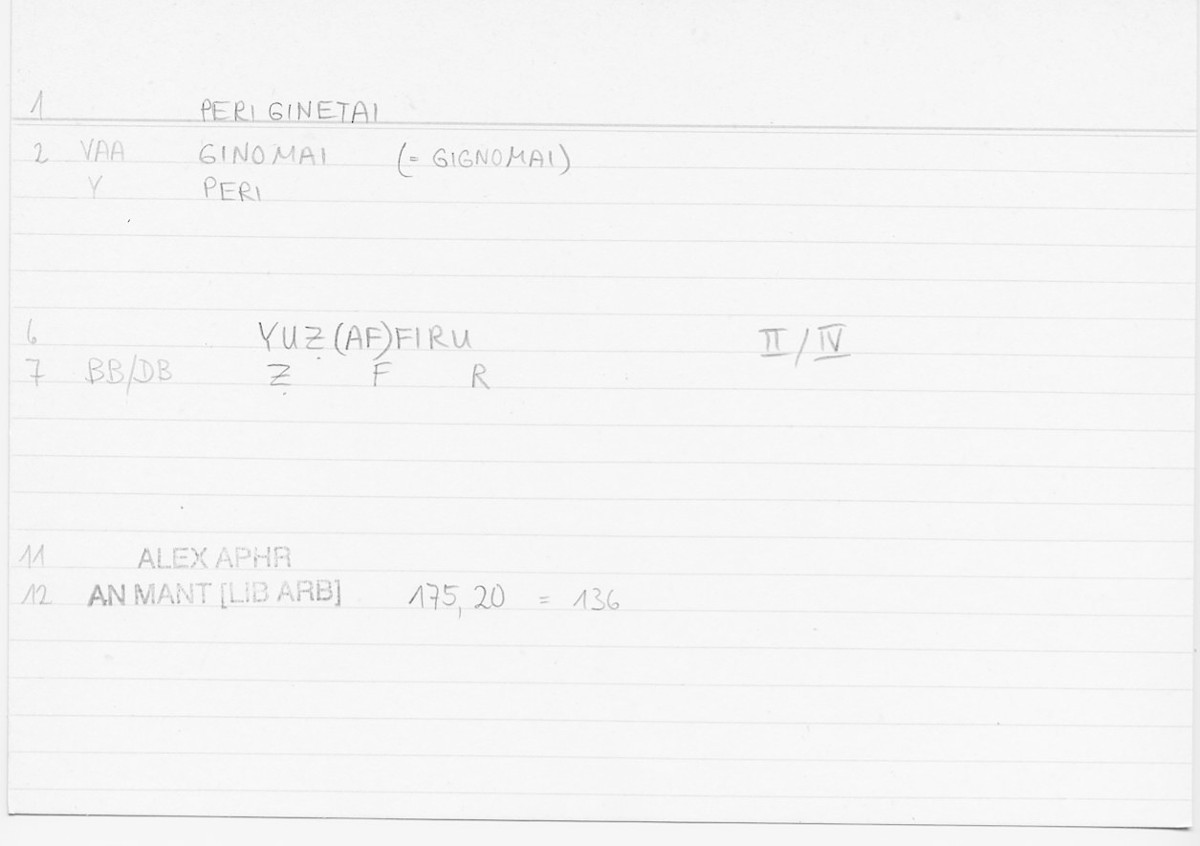 1 PERI GINETAI
2 VAA GINOMAI (= GIGNOMAI)
Y PERI
6 YUẒ(AF)FIRU II/IV
7 BB/DB Ẓ F R
11 ALEX APHR
12 AN MANT [LIB ARB] 175,20 = 136